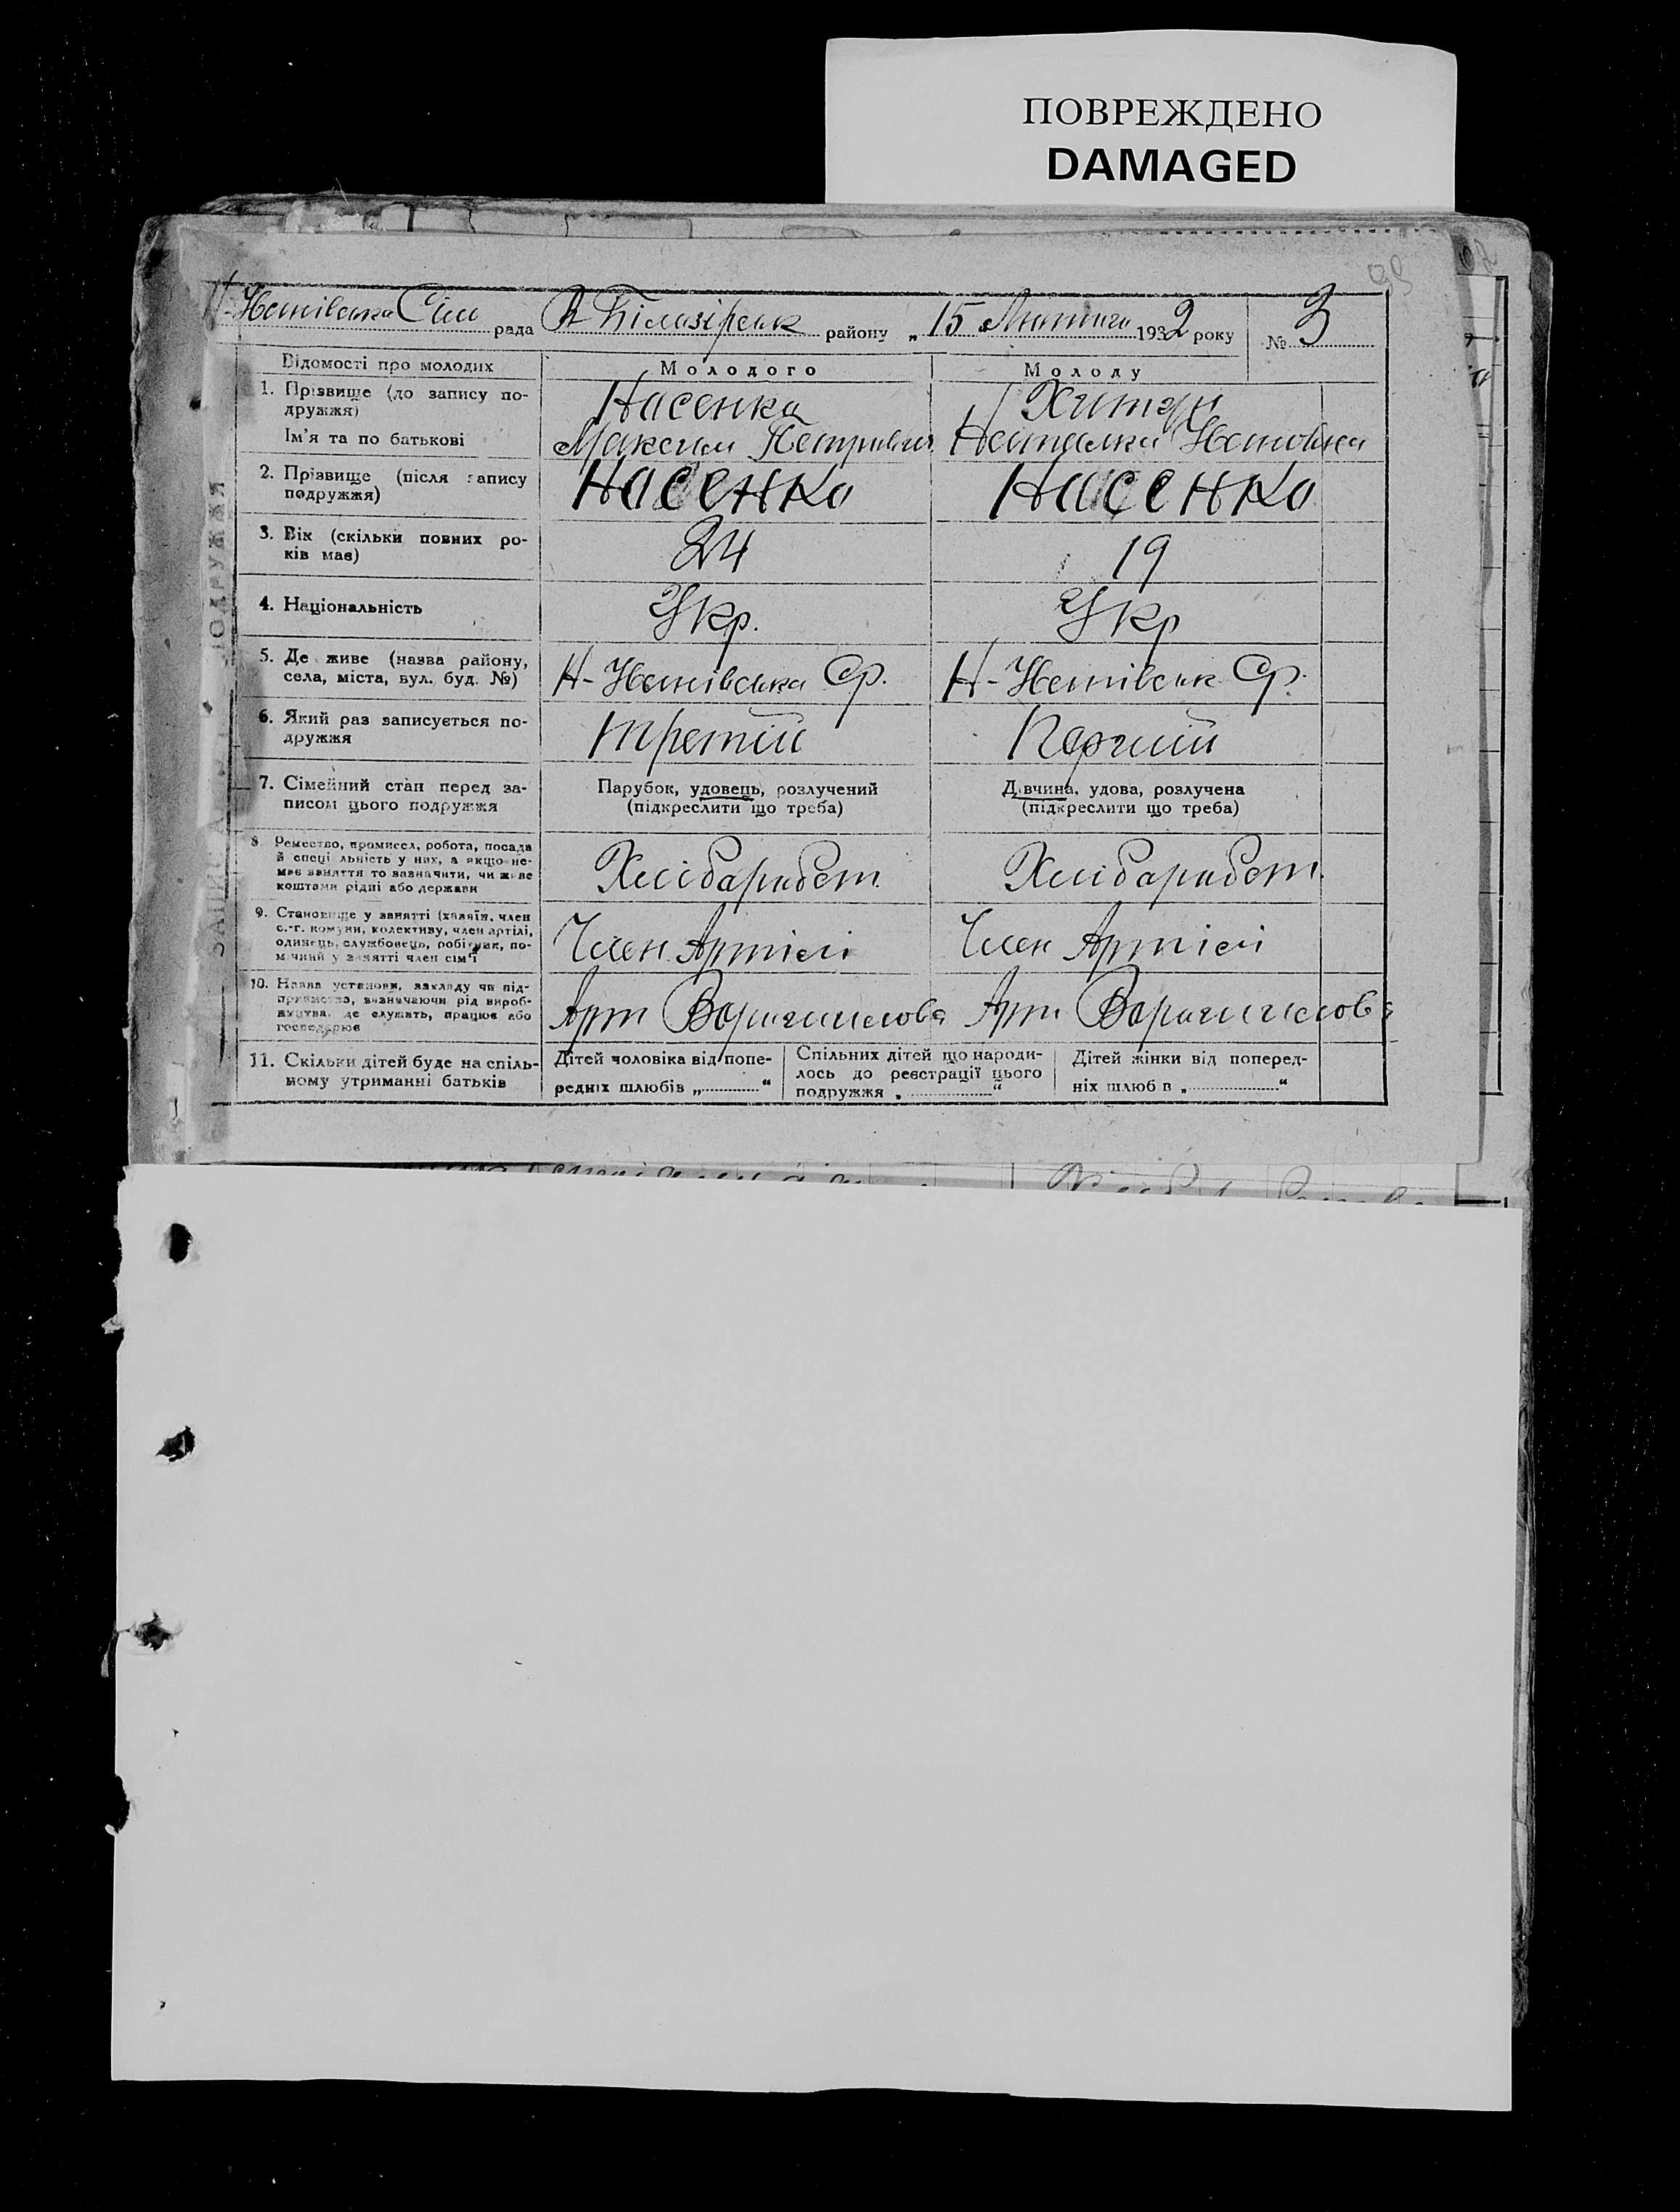 ПОВРЕЖДЕНО
DAMAGED
рада В Білозірськ району „15 Лютого 1932 року № 3
Відомості про молодих Молодого Молоду
1. Прізвище (до запису подружжя) Насенко
Ім'я та по батькові Максим Петрович Наталка
2. Прізвище (після запису подружжя) Насенко Насенко
3. Вік (скільки повних років має) 24 19
4. Національність Укр. Укр
5. Де живе (назва району, села, міста, вул. буд. №) Ср. Ср.
6. Який раз записується подружжя третій Перший
7. Сімейний стан перед записом цього подружжя Парубок, удовець, розлучений (підкреслити що треба) Дівчина, удова, розлучена (підкреслити що треба)
8. Ремество, промисел, робота, посада й спеціальність у них, а якщо немає заняття то зазначити, чи живе коштами рідні або держави Хлібаробст. Хлібаробст.
9. Становище у занятті (хазяїн, член с.-г. комуни, колективу, член артілі, одинець, службовець, робітник, помічний у занятті член сім'ї Член Артілі Член Артілі
10. Назва установи, закладу чи підприємства, визначаючи рід виробництва, де служать, працює або господарює Арт Ворошилова Арт Ворошилова
11. Скільки дітей буде на спільному утриманні батьків Дітей чоловіка від попередніх шлюбів „ “ Спільних дітей що народилось до реєстрації цього подружжя „ “ Дітей жінки від попередніх шлюб в „ “